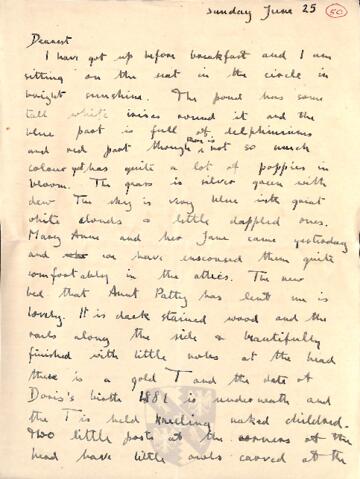 Sunday June 25 50
Dearest
I have got up before breakfast and I am
sitting on the seat in the circle in
bright sunshine. The pond has some
tall white irises round it and the
blue part is full of delphiniums
and red part though not so much
colour yet has quite a lot of poppies in
bloom. The grass is silver green with
dew The sky is very blue with great
white clouds & little dappled ones.
Mary Anne and her Jane came yesterday
and we have ensconsed them quite
comfortably in the attics. The new
bed that Aunt Patty has lent me is
lovely. It is dark stained wood and the
rails along the side & beautifully
finished with little at the head
there is a gold T and the date of
Doris's birth 1881 is underneath and
the T is held kneeling naked children.
Two little posts at the corners of the
head have little owls carved at the